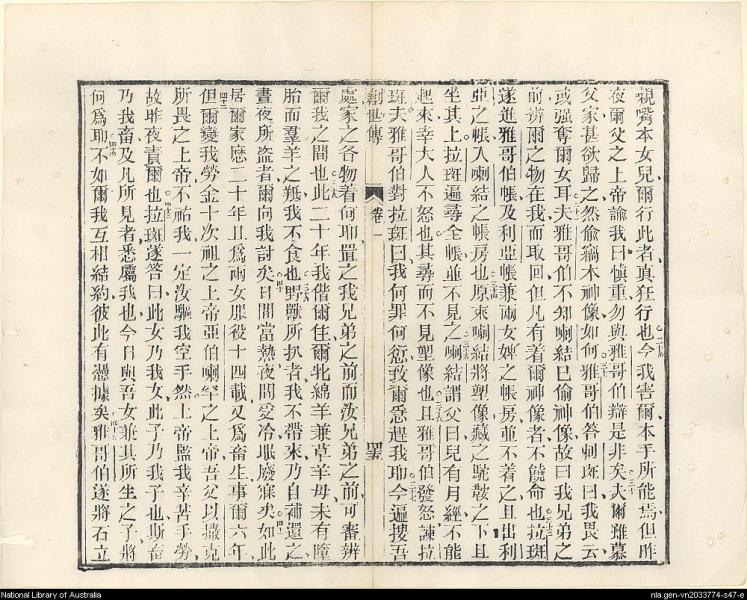 親嘴本女兒爾行此者真狂行也今我害爾本手所能焉但昨
夜爾父之上帝諭我曰慎重勿與雅哥伯辯是非矣夫爾雖慕
父家甚欲歸之然偷竊本神像如何雅哥伯答剌班曰我畏云
或强奪爾女耳夫雅哥伯不知喇結巳偷神像故曰我兄弟之
前辨爾之物在我而取回但凡有着爾神像者不饒命也拉斑
遂進雅哥伯帳及利亞帳兼兩女婢之帳房並不着之且出利
亞之帳入喇結之帳房也原來喇結將塑像藏之駝鞍之下且
坐其上拉斑遍尋全帳並不見之喇結謂父曰兒有月經不能
起來幸大人不怒也其尋而不見塑像也且雅哥伯發怒諫拉
斑夫雅哥伯對拉斑曰我何罪何愆致爾忿趕我耶今遍搜吾
創世傳 卷一
處家之各物着何耶置之我兄弟之前而汝兄弟之前可審辨
爾我之間也此二十年我偕爾住爾牝綿羊兼草羊母未有墮
胎而羣羊之羝我不食也野獸所扒者我不帶來乃自補還之
晝夜所盜者爾向我討矣日間當熱夜間受冷眠廢寐矣如此
居爾家應二十年且爲兩女服役十四載又爲畜生事爾六年
但爾變我勞金十次祖之上帝亞伯喇罕之上帝吾父以撒克
所畏之上帝不祐我一定汝驅我空手然上帝監我辛苦手勞
故昨夜責爾也拉斑遂答曰此女乃我女此子乃我子也斯畜
乃我畜及凡所見者悉屬我也今日與吾女兼其所生之子將
何爲耶不如爾我互相結約彼此有憑據矣雅哥伯遂將石立
National Library of Australia
nla.gen-vn2033774-s47-e